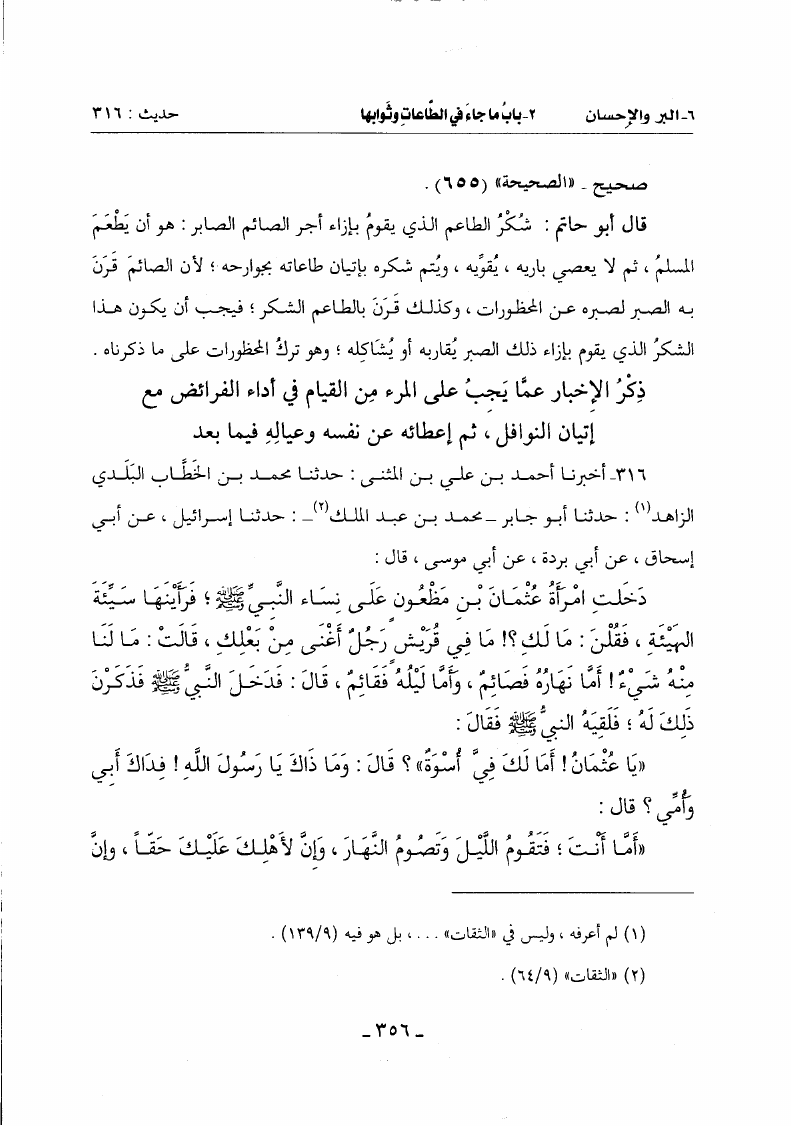 ٦-البر والإحسان ٢-بابُ ما جاءَ في الطّاعاتِ وثَوابها حديث : ٣١٦
صحيح ـ «الصحيحة» (٦٥٥) .
قال أبو حاتم : شُكْرُ الطاعم الذي يقومُ بإزاء أجر الصائم الصابر : هو أن يَطْعَمَ
المسلمُ ، ثم لا يعصي باريه ، يُقوِّيه ، ويُتم شكره بإتيان طاعاته بجوارحه ؛ لأن الصائمَ قَرَنَ
به الصبر لصبره عن المحظورات ، وكذلك قَرَنَ بالطاعم الشكر ؛ فيجب أن يكون هذا
الشكرُ الذي يقوم بإزاء ذلك الصبر يُقاربه أو يُشاكله ؛ وهو تركُ المحظورات على ما ذكرناه .
ذِكْرُ الإخبار عمَّا يَجِبُ على المرء مِن القيام في أداء الفرائض مع
إتيان النوافل ، ثم إعطائه عن نفسه وعيالِهِ فيما بعد
٣١٦- أخبرنا أحمد بن علي بن المثنى : حدثنا محمد بن الخطَّاب البَلَدي
الزاهد(١) : حدثنا أبو جابر ـ محمد بن عبد الملك(٢) ـ : حدثنا إسرائيل ، عن أبي
إسحاق ، عن أبي بردة ، عن أبي موسى ، قال :
دَخَلَتِ امْرَأَةُ عُثْمَانَ بْنِ مَظْعُونٍ عَلَى نِسَاءِ النَّبِيِّ ﷺ ؛ فَرَأَيْنَهَا سَيِّئَةَ
الهَيْئَةِ ، فَقُلْنَ : مَا لَكِ ؟! مَا فِي قُرَيْشٍ رَجُلٌ أَغْنَى مِنْ بَعْلِكِ ، قَالَتْ : مَا لَنَا
مِنْهُ شَيْءٌ ! أَمَّا نَهَارُهُ فَصَائِمٌ ، وَأَمَّا لَيْلُهُ فَقَائِمٌ ، قَالَ : فَدَخَلَ النَّبِيُّ ﷺ فَذَكَرْنَ
ذَلِكَ لَهُ ؛ فَلَقِيَهُ النبيُّ ﷺ فَقَالَ :
«يَا عُثْمَانُ ! أَمَا لَكَ فِيَّ أُسْوَةٌ» ؟ قَالَ : وَمَا ذَاكَ يَا رَسُولَ اللَّهِ ! فِدَاكَ أَبِي
وَأُمِّي ؟ قال :
«أَمَّا أَنْتَ ؛ فَتَقُومُ اللَّيْلَ وَتَصُومُ النَّهَارَ ، وَإِنَّ لأَهْلِكَ عَلَيْكَ حَقّاً ، وَإِنَّ
(١) لم أعرفه ، وليس في «الثقات» . . . ، بل هو فيه (١٣٩/٩) .
(٢) «الثقات» (٦٤/٩) .
ـ ٣٥٦ ـ